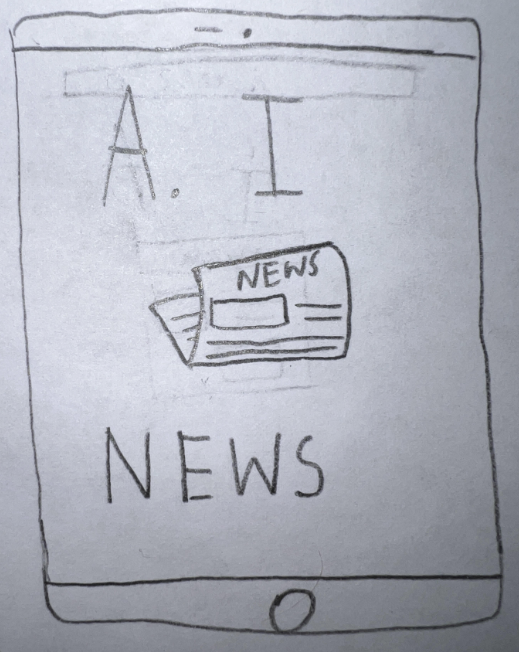 A. I
NEWS
NEWS